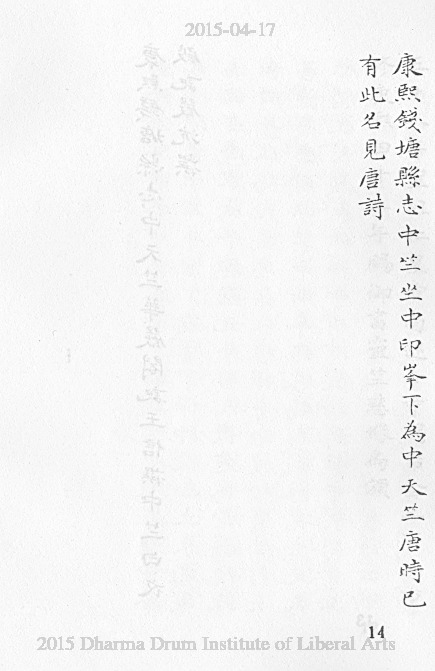 2015-04-17
康熙錢塘縣志中竺坐中印峯下為中天竺唐時已
有此名見唐詩
14
2015 Dharma Drum Institute of Liberal Arts